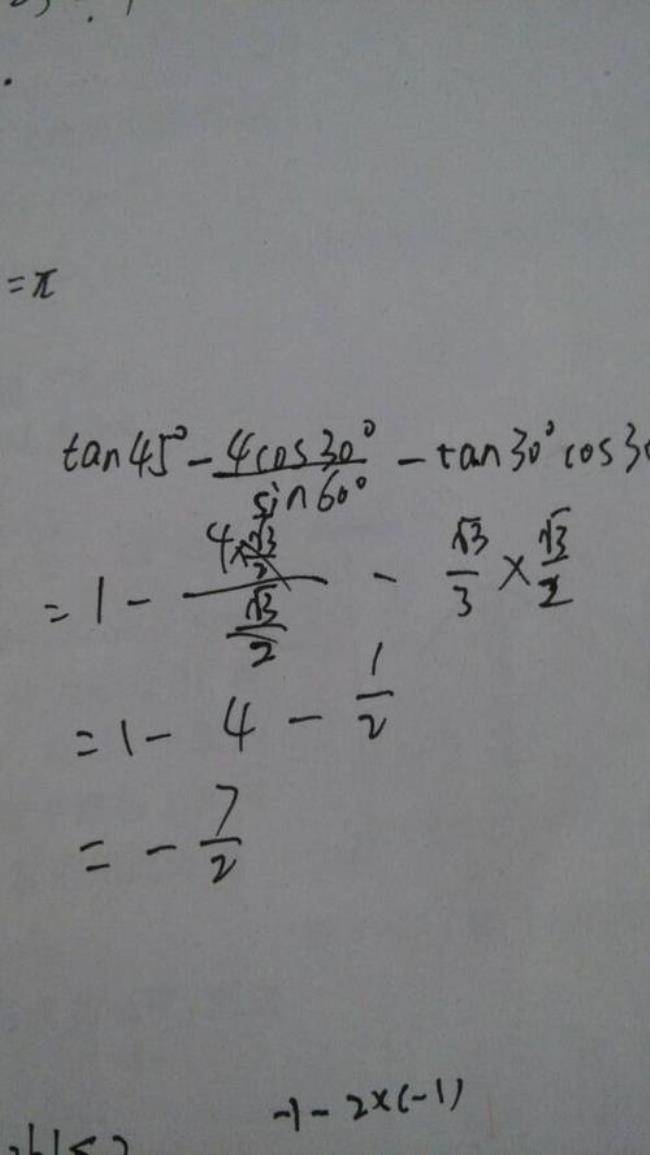 =π
tan45°-4cos30°/sin60°-tan30°cos30
=1-(4×√3/2)/(√3/2)-√3/3×√3/2
=1-4-1/2
=-7/2
-1-2×(-1)